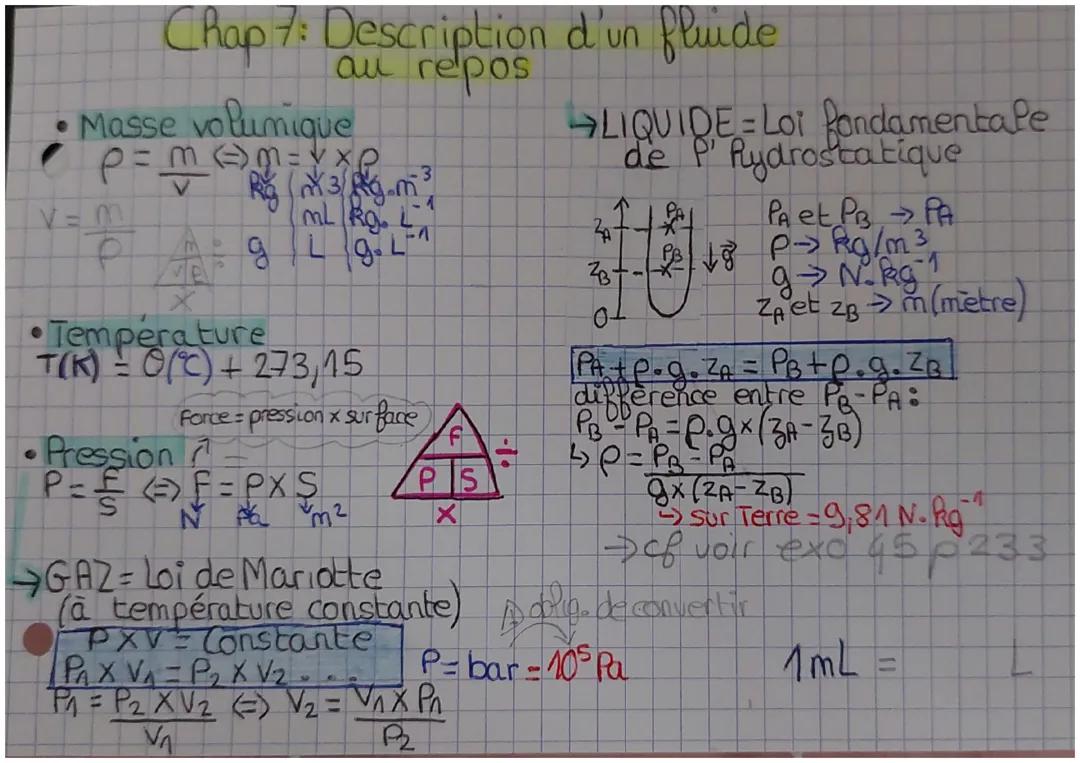 Chap 7: Description d'un fluide
au repos
• Masse volumique
ρ = m/v <=> m = v x ρ
kg | m3 | kg.m⁻³
mL | kg. L⁻¹
g | L | g. L⁻¹
V = m/ρ
m
V ρ
÷
X
• Température
T(K) = θ(°C) + 273,15
Force = pression x surface
• Pression
P = F/S <=> F = P X S
N Pa m²
F
P S
÷
X
→ GAZ = Loi de Mariotte
(à température constante)
P X V = Constante
P1 X V1 = P2 X V2 . . .
P1 = P2 X V2 / V1 <=> V2 = V1 X P1 / P2
oblig. de convertir
P = bar = 10⁵ Pa
→ LIQUIDE = Loi fondamentale
de l'hydrostatique
ZA
ZB
O
PA
PB
g
PA et PB → PA
ρ → kg/m³
g → N. kg⁻¹
ZA et ZB → m (mètre)
PA + ρ.g. ZA = PB + ρ.g. ZB
différence entre PB - PA :
PB - PA = ρ.g x (zA - zB)
↳ ρ = PB - PA / g x (ZA - ZB)
↳ sur Terre = 9,81 N. kg⁻¹
→ cf voir exo 45 p 233
1 mL = L